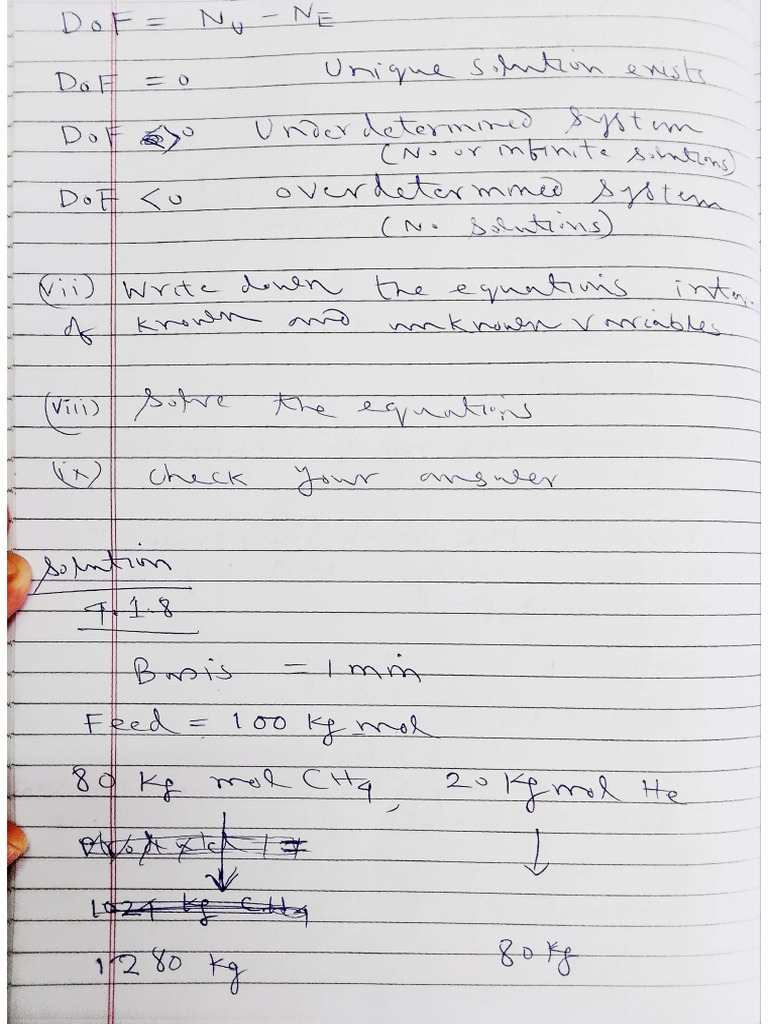 DoF = Nu - NE
DoF = 0 Unique solution exists
DoF >0 Underdetermined system
(No or infinite solutions)
DoF <0 overdetermined system
(No solutions)
(vii) Write down the equations
of known and unknown variables
(viii) Solve the equations
(ix) check your answer
Solution
1.8
Basis = 1 min
Feed = 100 kg mol
80 kg mol CH4, 20 kg mol He
1024 kg CH4
1280 kg 80 kg